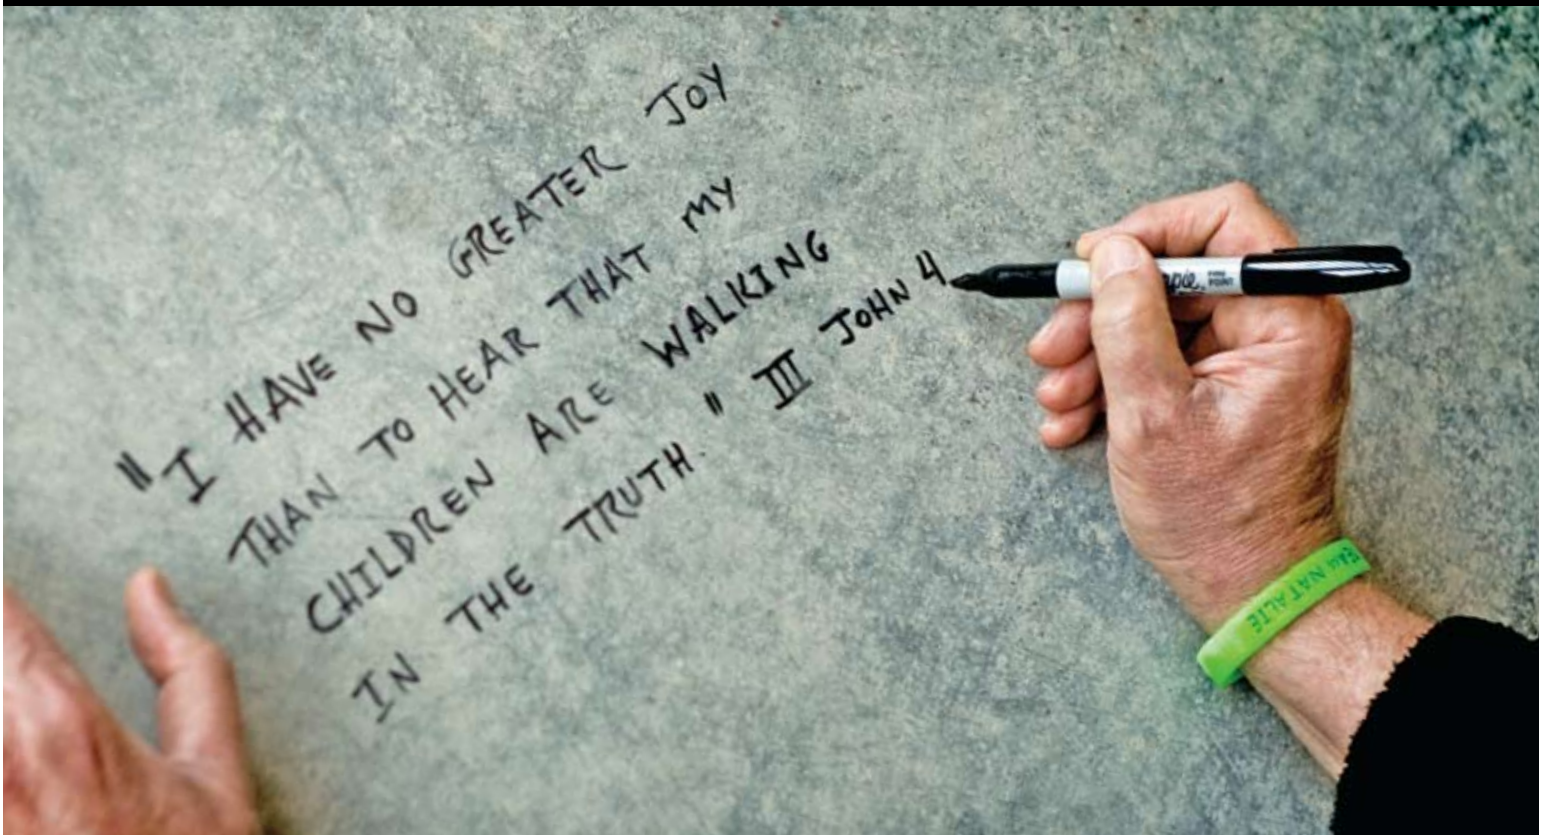 "I HAVE NO GREATER JOY
THAN TO HEAR THAT MY
CHILDREN ARE WALKING
IN THE TRUTH." III JOHN 4
FINE
POINT
NATALIE